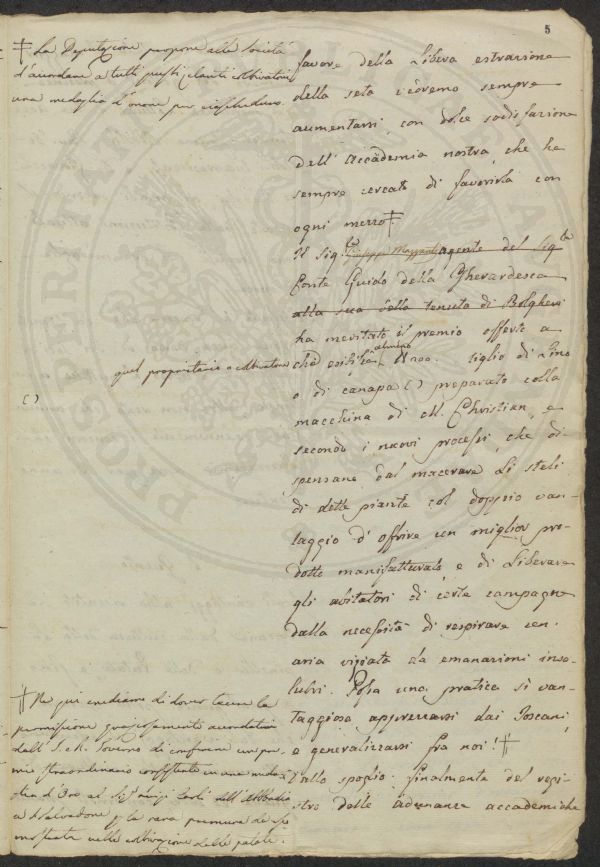 5
‡ La Deputazione propone alla Società
d'accordare a tutti questi zelanti coltivatori
una medaglia d'onore per ciascheduno.
favore della Libera estrazione
della seta vedremo sempre
aumentarsi, con dolce sodisfazione
dell'Accademia nostra, che ha
sempre cercato di favorirla con
ogni mezzo ‡.
Il Sig.re Giuseppe Mazzanti agente del Sig.
Conte Guido della Gherardesca
alla sua bella tenuta di Bolgheri
ha meritato il premio offerto a
quel proprietario o coltivatore
che esibirà almeno 200. tiglio di Lino
( )
o di canapa ( ) preparato colla
macchina di M. Christian, e
secondo i nuovi processi, che di-
spensano dal macerare Li steli
di dette piante col doppio van-
taggio d'offrire un miglior pro-
dotto manifatturato, e di Liberare
gli abitatori di certe campagne
dalla necessità di respirare un
aria viziata da emanazioni insa-
lubri. Possa una pratica sì van-
taggiosa apprezzarsi dai Toscani,
e generalizzarsi fra noi! ‡
‡ Ne qui crediamo di dover tacere la
permissione graziosamente accordatasi
dall'I. e R. Governo di conferire un pre-
mio straordinario consistente in una meda-
glia d'Oro al Sig. Luigi Carli dell'Abbadia
a S. Salvadore p. la rara premura di esso
mostrata nella coltivazione delle patate.
Dallo spoglio finalmente del regi-
stro delle adunanze accademiche